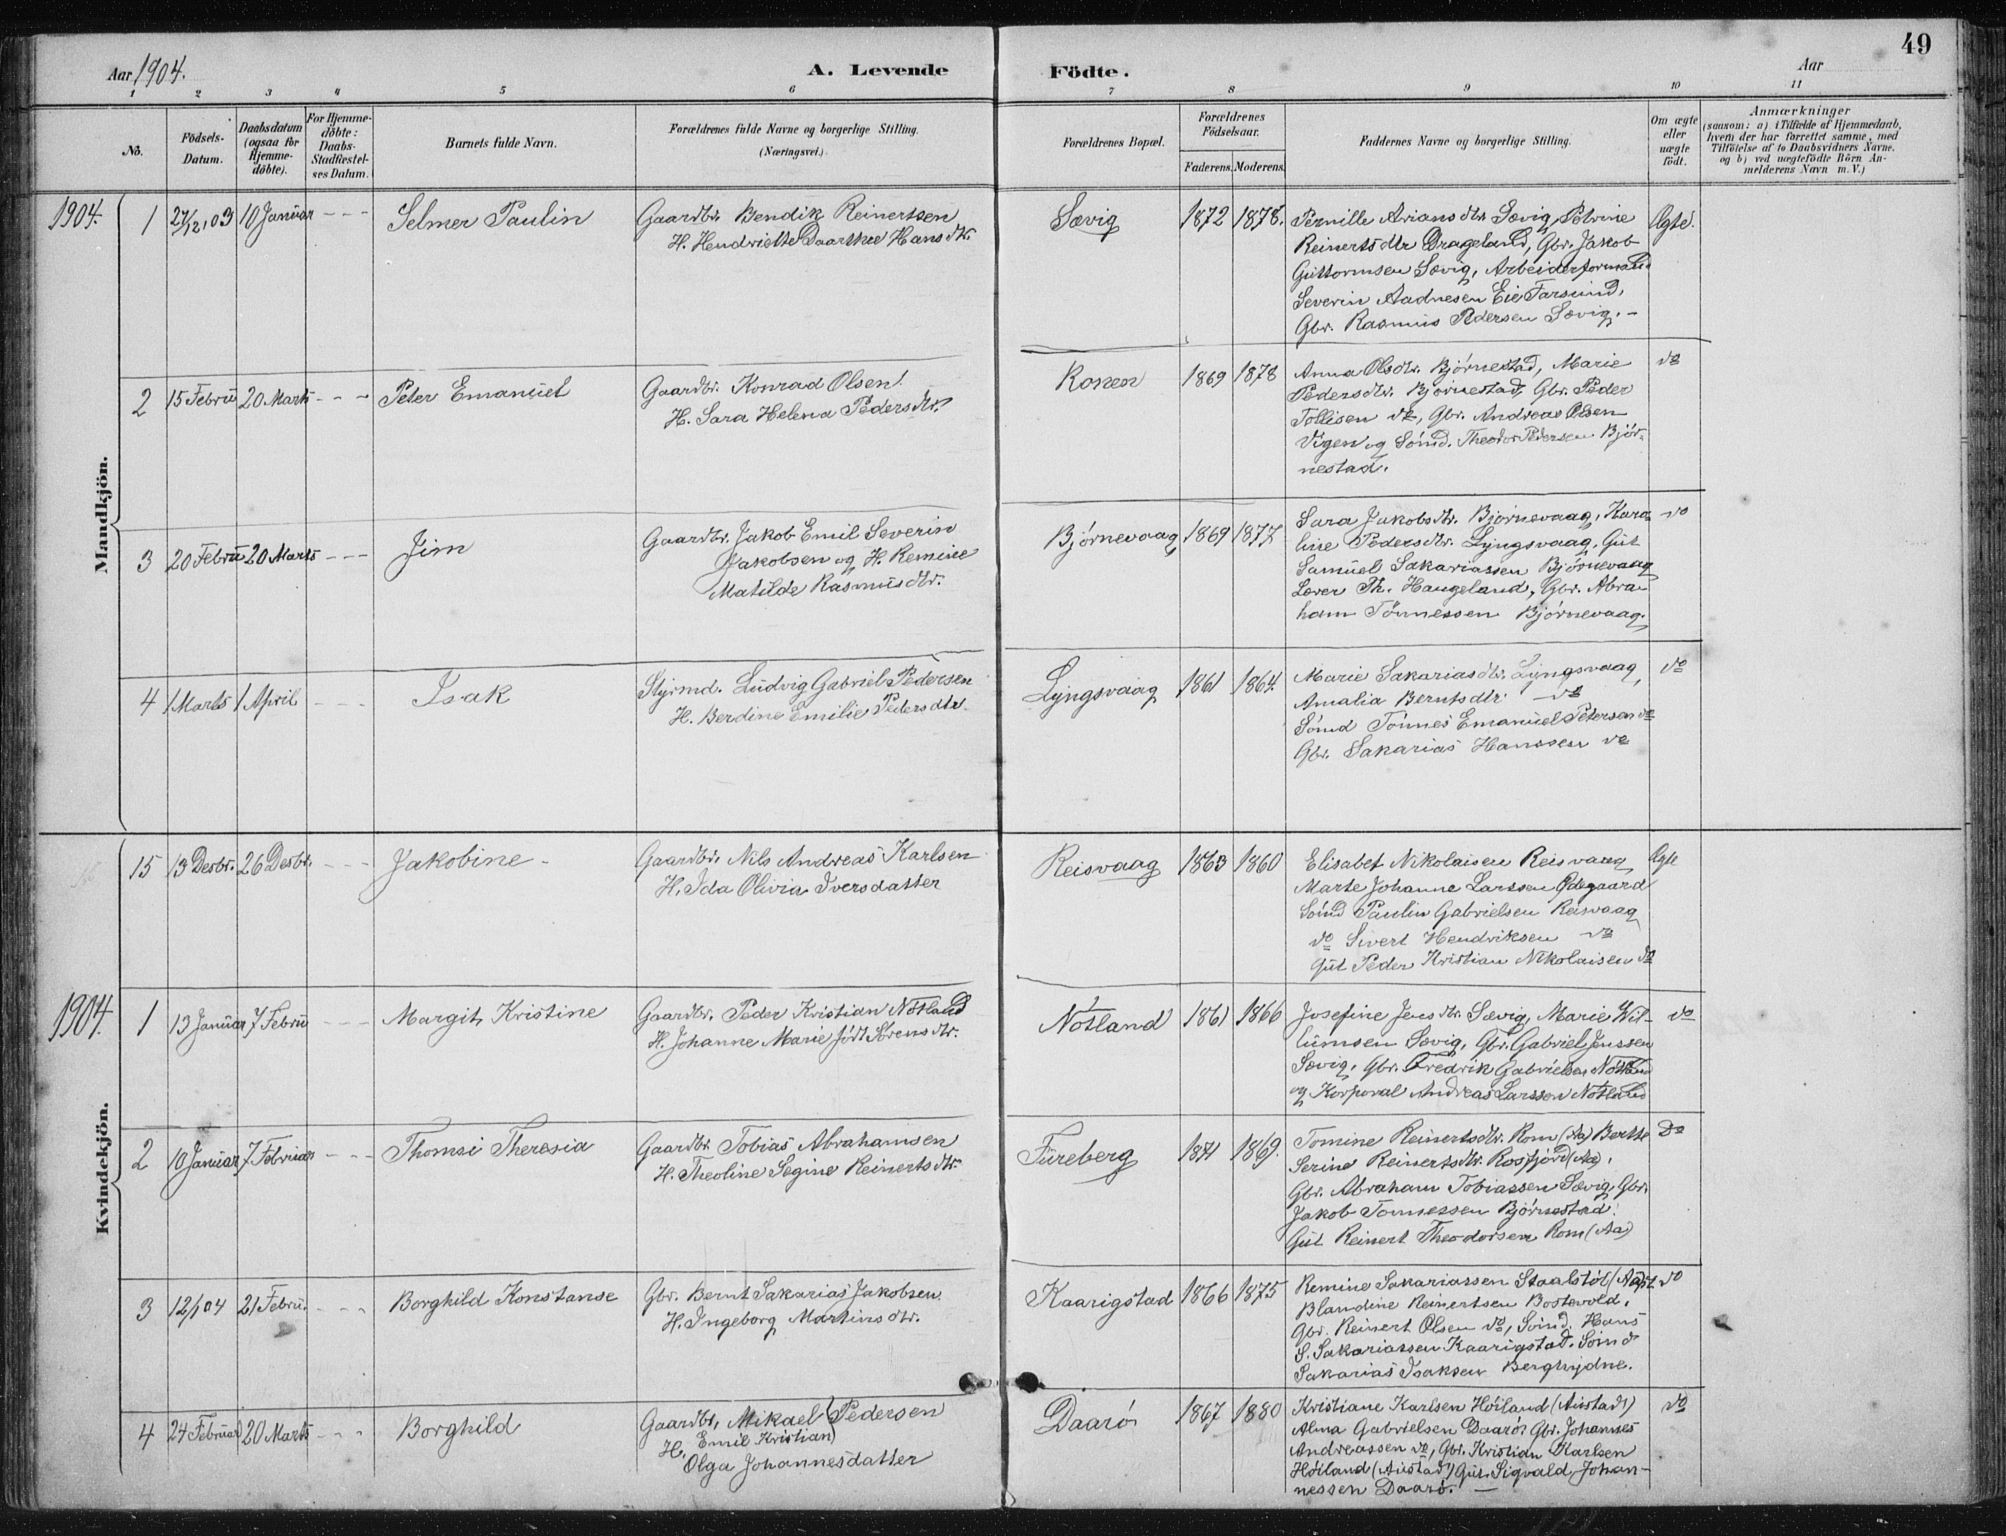 49
Aar 1904.
A. Levende Födte.
Aar
1 2 3 4 5 6 7 8 9 10 11
No.
Födsels-Datum.
Daabsdatum (ogsaa for Hjemme-döbte).
For Hjemme-döbte: Daabs-Stadfæstel-ses Datum.
Barnets fulde Navn.
Forældrenes fulde Navne og borgerlige Stilling.
(Næringsvei.)
Forældrenes Bopæl.
Forældrenes Födselsaar.
Faderens. Moderens.
Faddernes Navne og borgerlige Stilling.
Om ægte eller uægte födt.
Anmærkninger
(saasom: a) i Tilfælde af Hjemmedaab,
hvem der har forrettet samme, med
Tilföielse af to Daabsvidners Navne.
og b) ved uægtefödte Börn An-
melderens Navn m. V.)
Mandkjön.
1904. 1 27/12 03 10 Januar - - - Selmer Paulin
Gaardbr. Bendik Reinertsen
H. Hendriette Daarthea Hansdtr.
Sævig 1872 1878.
Pernille Ariansdtr. Sævig, Petrine
Reinertsdtr Drageland, Gbr. Jakob
Guttormsen Sævig, Arbeiderformand
Severin Aadnesen Eie Farsund,
Gbr. Rasmus Pedersen Sævig. -
Ægte.
2 15 Febru 20 Marts - - - Peter Emanuel
Gaardbr. Konrad Olsen
H. Sara Helena Pedersdtr.
Konen 1869 1878
Anna Olsdtr. Bjørnestad, Marie
Pedersdtr. Bjørnestad, Gbr. Peder
Tollisen do, Gbr. Andreas Olsen
Vigen og Sömd. Theodor Pedersen Bjør-
nestad.
do
3 20 Febru 20 Marts - - - Jim
Gaardbr. Jakob Emil Severin
Jakobsen og H. Remine
Matilde Rasmusdtr.
Bjørnevaag 1869 1877
Sara Jakobsdtr. Bjørnevaag, Karo-
line Pedersdtr. Lyngsvaag, Gut
Samuel Sakariassen Bjørnevaag
Lærer Th. Haugeland, Gbr. Abra-
ham Tönnessen Bjørnevaag.
do
4 1 Marts 1 April - - - Isak
Styrmd. Ludvig Gabriel Pedersen
H. Berdine Emilie Pedersdtr.
Lyngsvaag 1861 1864.
Marie Sakariasdtr. Lyngsvaag,
Amalia Berntsdtr. do
Sömd Tönnes Emanuel Petersen do
Gbr. Sakarias Hanssen do
do
Kvindekjön.
15 13 Desbr. 26 Desbr. - - - Jakobine -
Gaardbr. Nils Andreas Karlsen
H. Ida Olivia Iversdatter
Reisvaag 1863 1860
Elisabet Nikolaisen Reisvaag
Marte Johanne Larssen Ødegaard
Sömd Paulin Gabrielsen Reisvaag
do Sivert Hendriksen do
Gut Peder Kristian Nikolaisen do
Ægte
1904. 1 13 Januar 7 Febru - - - Margit Kristine
Gaardbr. Peder Kristian Nötland
H. Johanne Marie födt Sörensdtr.
Nötland 1861 1866
Josefine Jensdtr. Sævig, Marie Wil-
lumsen Sævig, Gbr. Gabriel Jenssen
Sævig, Gbr. Fredrik Gabrielsen Nötland
og Korporal Andreas Larssen Nötland
do
2 10 Januar 7 Februar - - - Thomsi Theresia
Gaardbr. Tobias Abrahamsen
H. Theoline Segine Reinertsdtr.
Füreberg 1871 1869.
Tomine Reinertsdtr. Rom (Aa) Berthe
Serine Reinertsdtr. Rosfjord (Aa),
Gbr. Abraham Tobiassen Sævig, Gbr.
Jakob Tönnessen Bjørnestad.
Gut Reinert Theodorsen Rom (Aa)
Do
3 12/1 04 21 Febru. - - - Borghild Konstanse
Gbr. Bernt Sakarias Jakobsen
H. Ingeborg Martinsdtr.
Kaarigstad 1866 1875
Remine Sakariassen Staalstöl
Blandine Reinertsen Bostevold,
Gbr. Reinert Olsen do, Sömd. Hans
S. Sakariassen Kaarigstad. Sömd
Sakarias Isaksen Berghydne.
do
4 24 Februar 20 Marts - - - Borghild
Gaardbr. Mikael (Pedersen
Emil Kristian)
H. Olga Johannesdatter
Daarö 1867 1880
Kristiane Karlsen Höiland (Austad)
Alma Gabrielsen Daarö. Gbr. Johannes
Andreassen do, Gbr. Kristian Karlsen
Höiland (Austad) Gut Sigvald Johan-
nessen Daarö. -
do